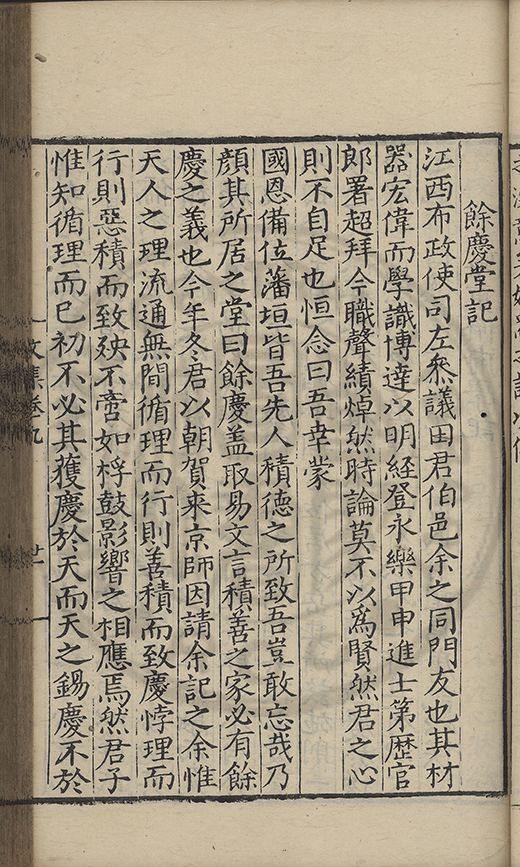 餘慶堂記
江西布政使司左叅議田君伯邑余之同門友也其材
器宏偉而學識博達以明經登永樂甲申進士第歷官
郎署超拜今職聲績焯然時論莫不以爲賢然君之心
則不自足也恒念曰吾幸蒙
國恩備位藩垣皆吾先人積德之所致吾豈敢忘哉乃
顔其所居之堂曰餘慶盖取易文言積善之家必有餘
慶之義也今年冬君以朝賀来京師因請余記之余惟
天人之理流通無間循理而行則善積而致慶悖理而
行則惡積而致殃不啻如桴鼓影響之相應焉然君子
惟知循理而已初不必其獲慶於天而天之錫慶不於
文集卷九
廿一